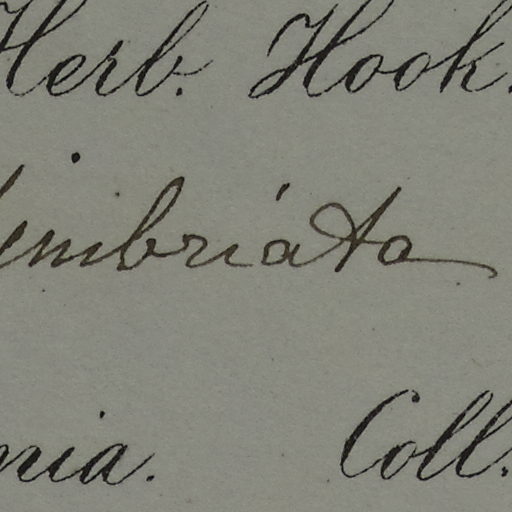 Herb. Hook.
imbriata
nia. Coll.